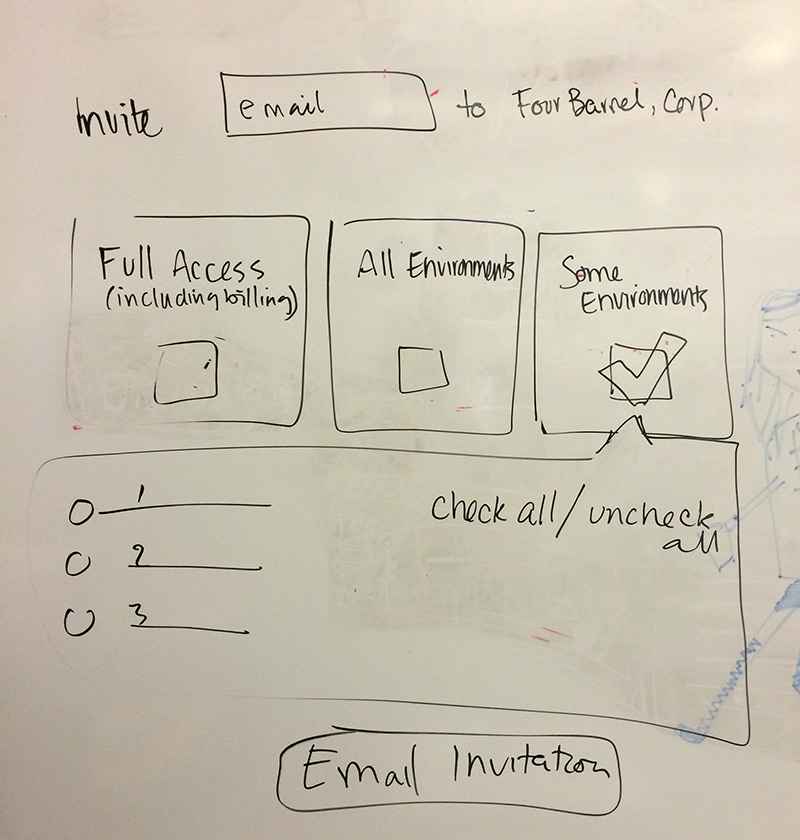 Invite email to Four Barrel, Corp.
Full Access
(including billing)
All Environments
Some
Environments
check all/uncheck
all
1
2
3
Email Invitation